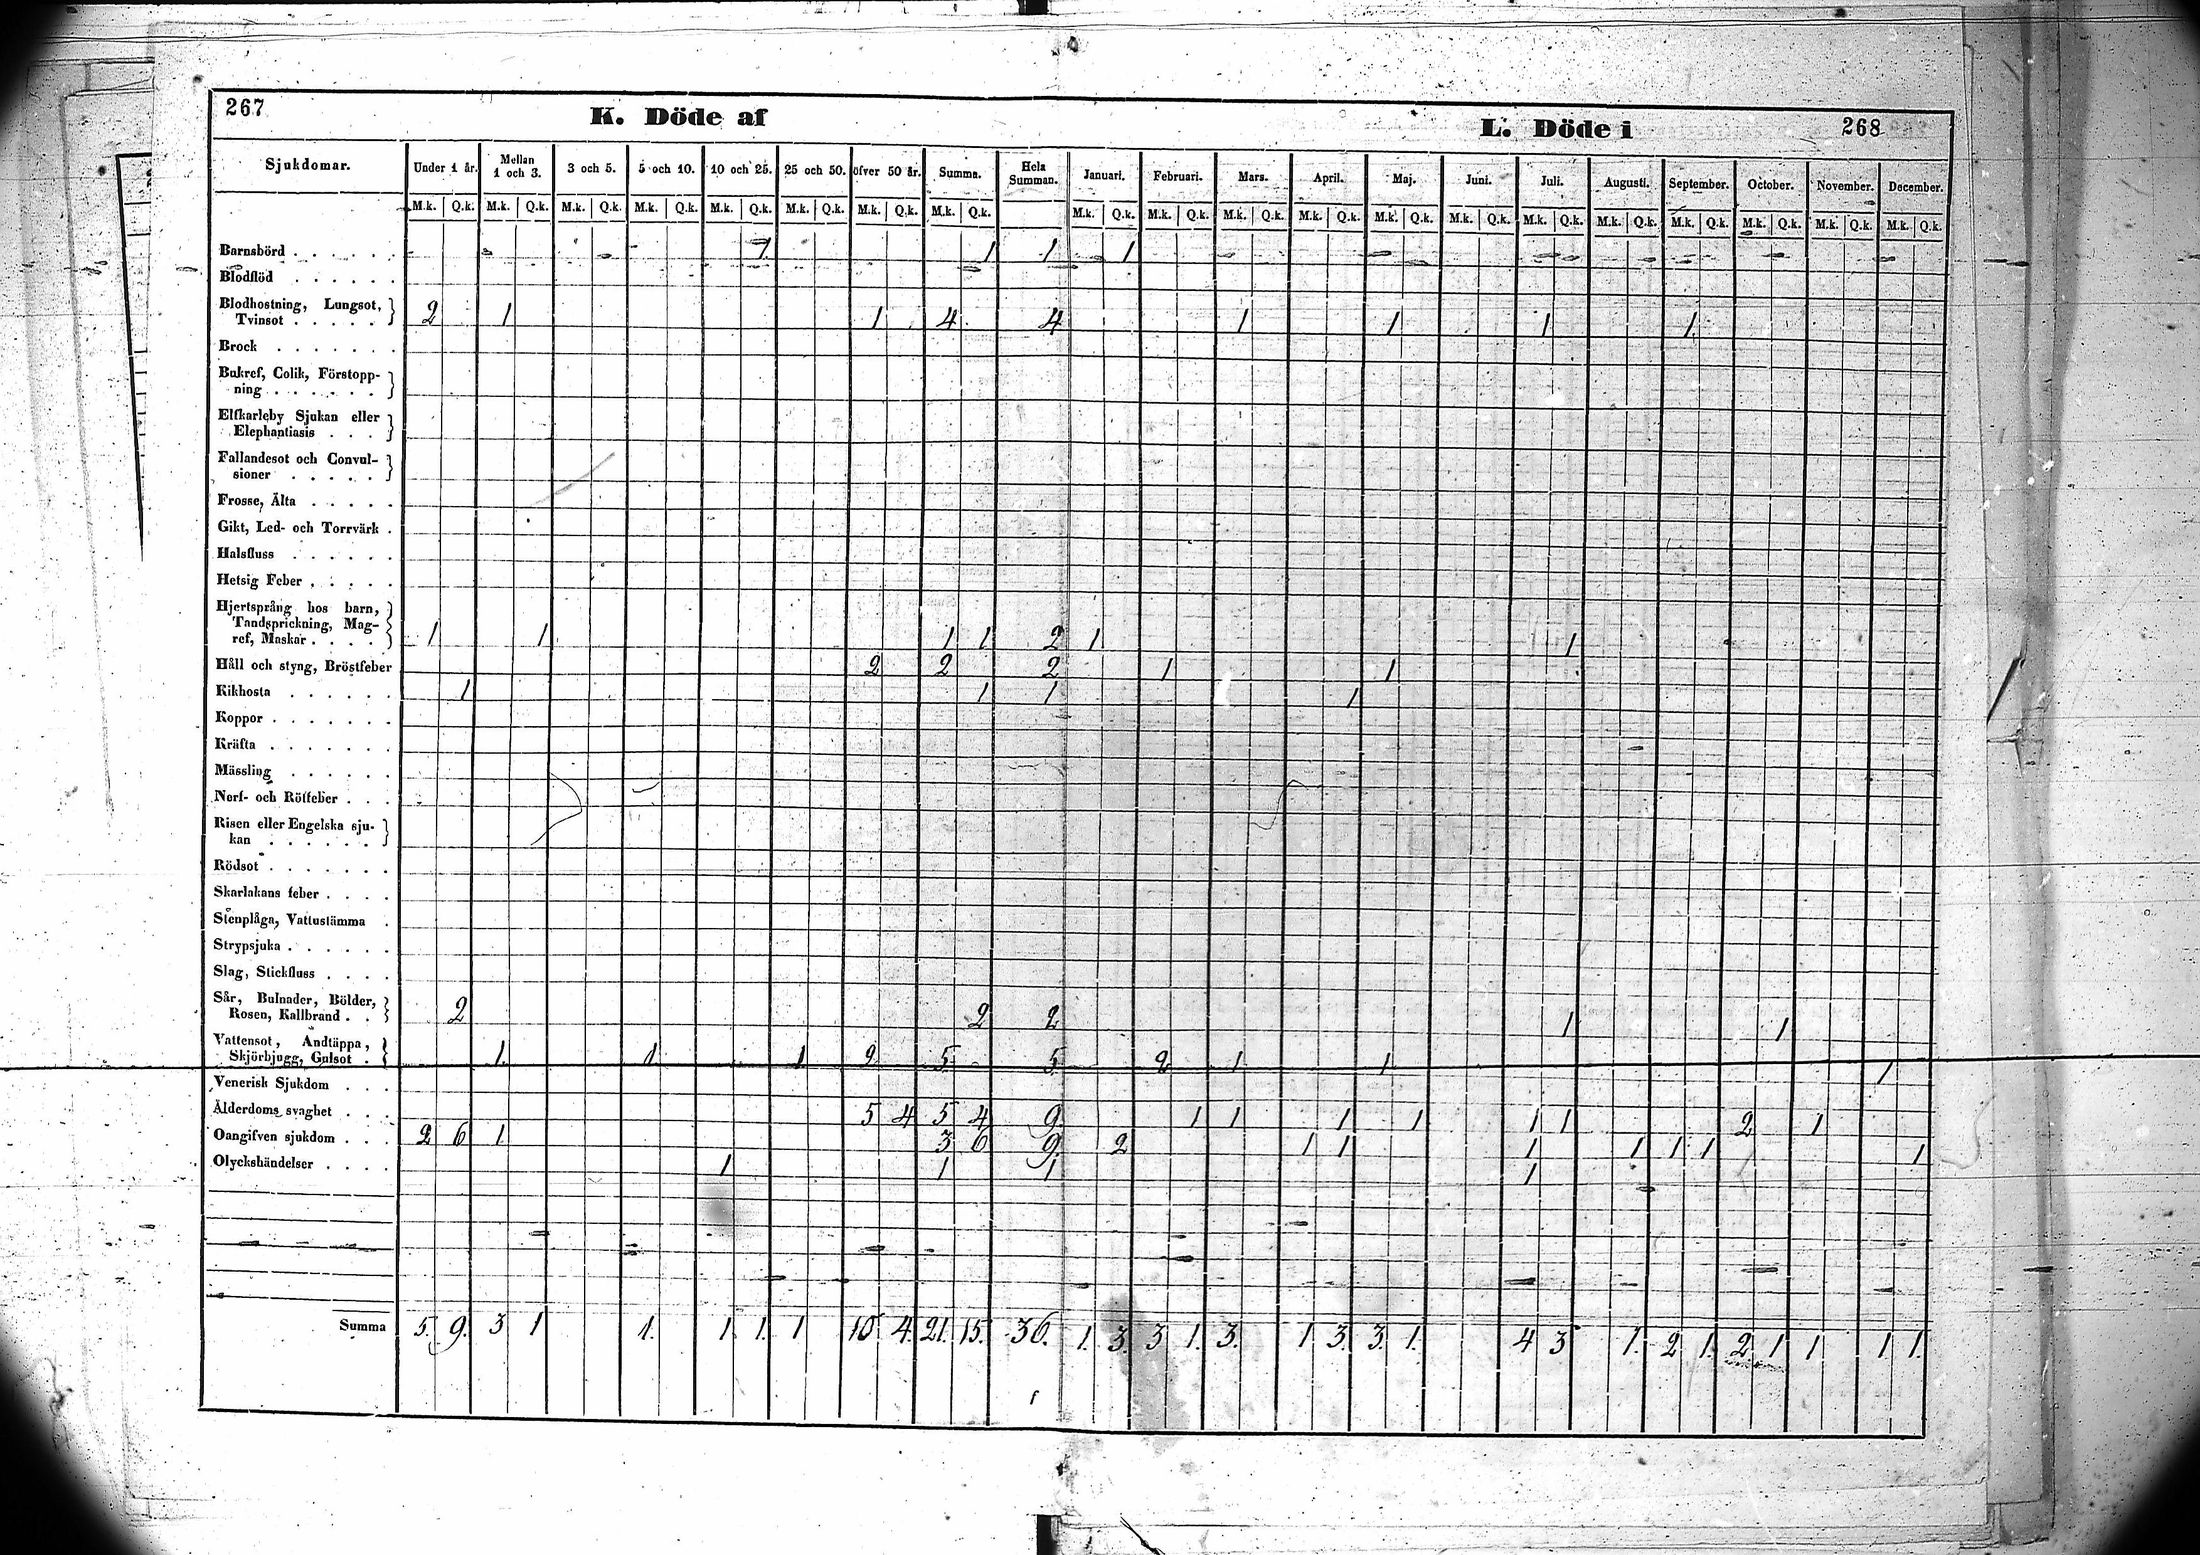 267 K. Döde af L. Döde i 268
Sjukdomar. Under 1 år. Mellan 1 och 3. 3 och 5. 5 och 10. 10 och 25. 25 och 50. öfver 50 år. Summa. Hela Summan. Januari. Februari. Mars. April. Maj. Juni. Juli. Augusti. September. October. November. December.
M.k. Q.k. M.k. Q.k. M.k. Q.k. M.k. Q.k. M.k. Q.k. M.k. Q.k. M.k. Q.k. M.k. Q.k. M.k. Q.k. M.k. Q.k. M.k. Q.k. M.k. Q.k. M.k. Q.k. M.k. Q.k. M.k. Q.k. M.k. Q.k. M.k. Q.k. M.k. Q.k. M.k. Q.k. M.k. Q.k.
Barnsbörd . . . . . . 1 1 1 1
Blodflöd . . . . . .
Blodhostning, Lungsot,
Tvinsot . . . . . 2 1 1 4 4 1 1 1 1
Brock . . . . . . .
Bukref, Colik, Förstopp-
ning . . . . . .
Elfkarleby Sjukan eller
Elephantiasis . . .
Fallandesot och Convul-
sioner . . . . .
Frosse, Älta . . . . .
Gikt, Led- och Torrvärk .
Halsfluss . . . . . .
Hetsig Feber . . . . .
Hjertsprång hos barn,
Tandsprickning, Mag-
ref, Maskar . . . . 1 1 1 1 2 1 1
Håll och styng, Bröstfeber 2 2 2 1 1
Kikhosta . . . . . . 1 1 1 1
Koppor . . . . . . .
Kräfta . . . . . . .
Mässling . . . . . .
Nerf- och Rötfeber . . .
Risen eller Engelska sju-
kan . . . . . .
Rödsot . . . . . . .
Skarlakans feber . . . .
Stenplåga, Vattustämma .
Strypsjuka . . . . . .
Slag, Stickfluss . . . .
Sår, Bulnader, Bölder,
Rosen, Kallbrand . . 2 2 2 1 1
Vattensot, Andtäppa,
Skjörbjugg, Gulsot . 1. 1 1 2 5. 5. 2 1 1 1
Venerisk Sjukdom . . .
Ålderdoms svaghet . . . 5 4 5 4 9. 1 1 1 1 1 1 2 1
Oangifven sjukdom . . . 2 6 1. 3 6 9. 2 1 1 1 1 1 1 1
Olyckshändelser . . . . 1 1 1 1
Summa 5. 9. 3 1 1. 1. 1. 1 10 4. 21. 15. 36. 1. 3. 3 1. 3. 1 3. 3. 1. 4 3 1. 2 1. 2 1 1 1 1.